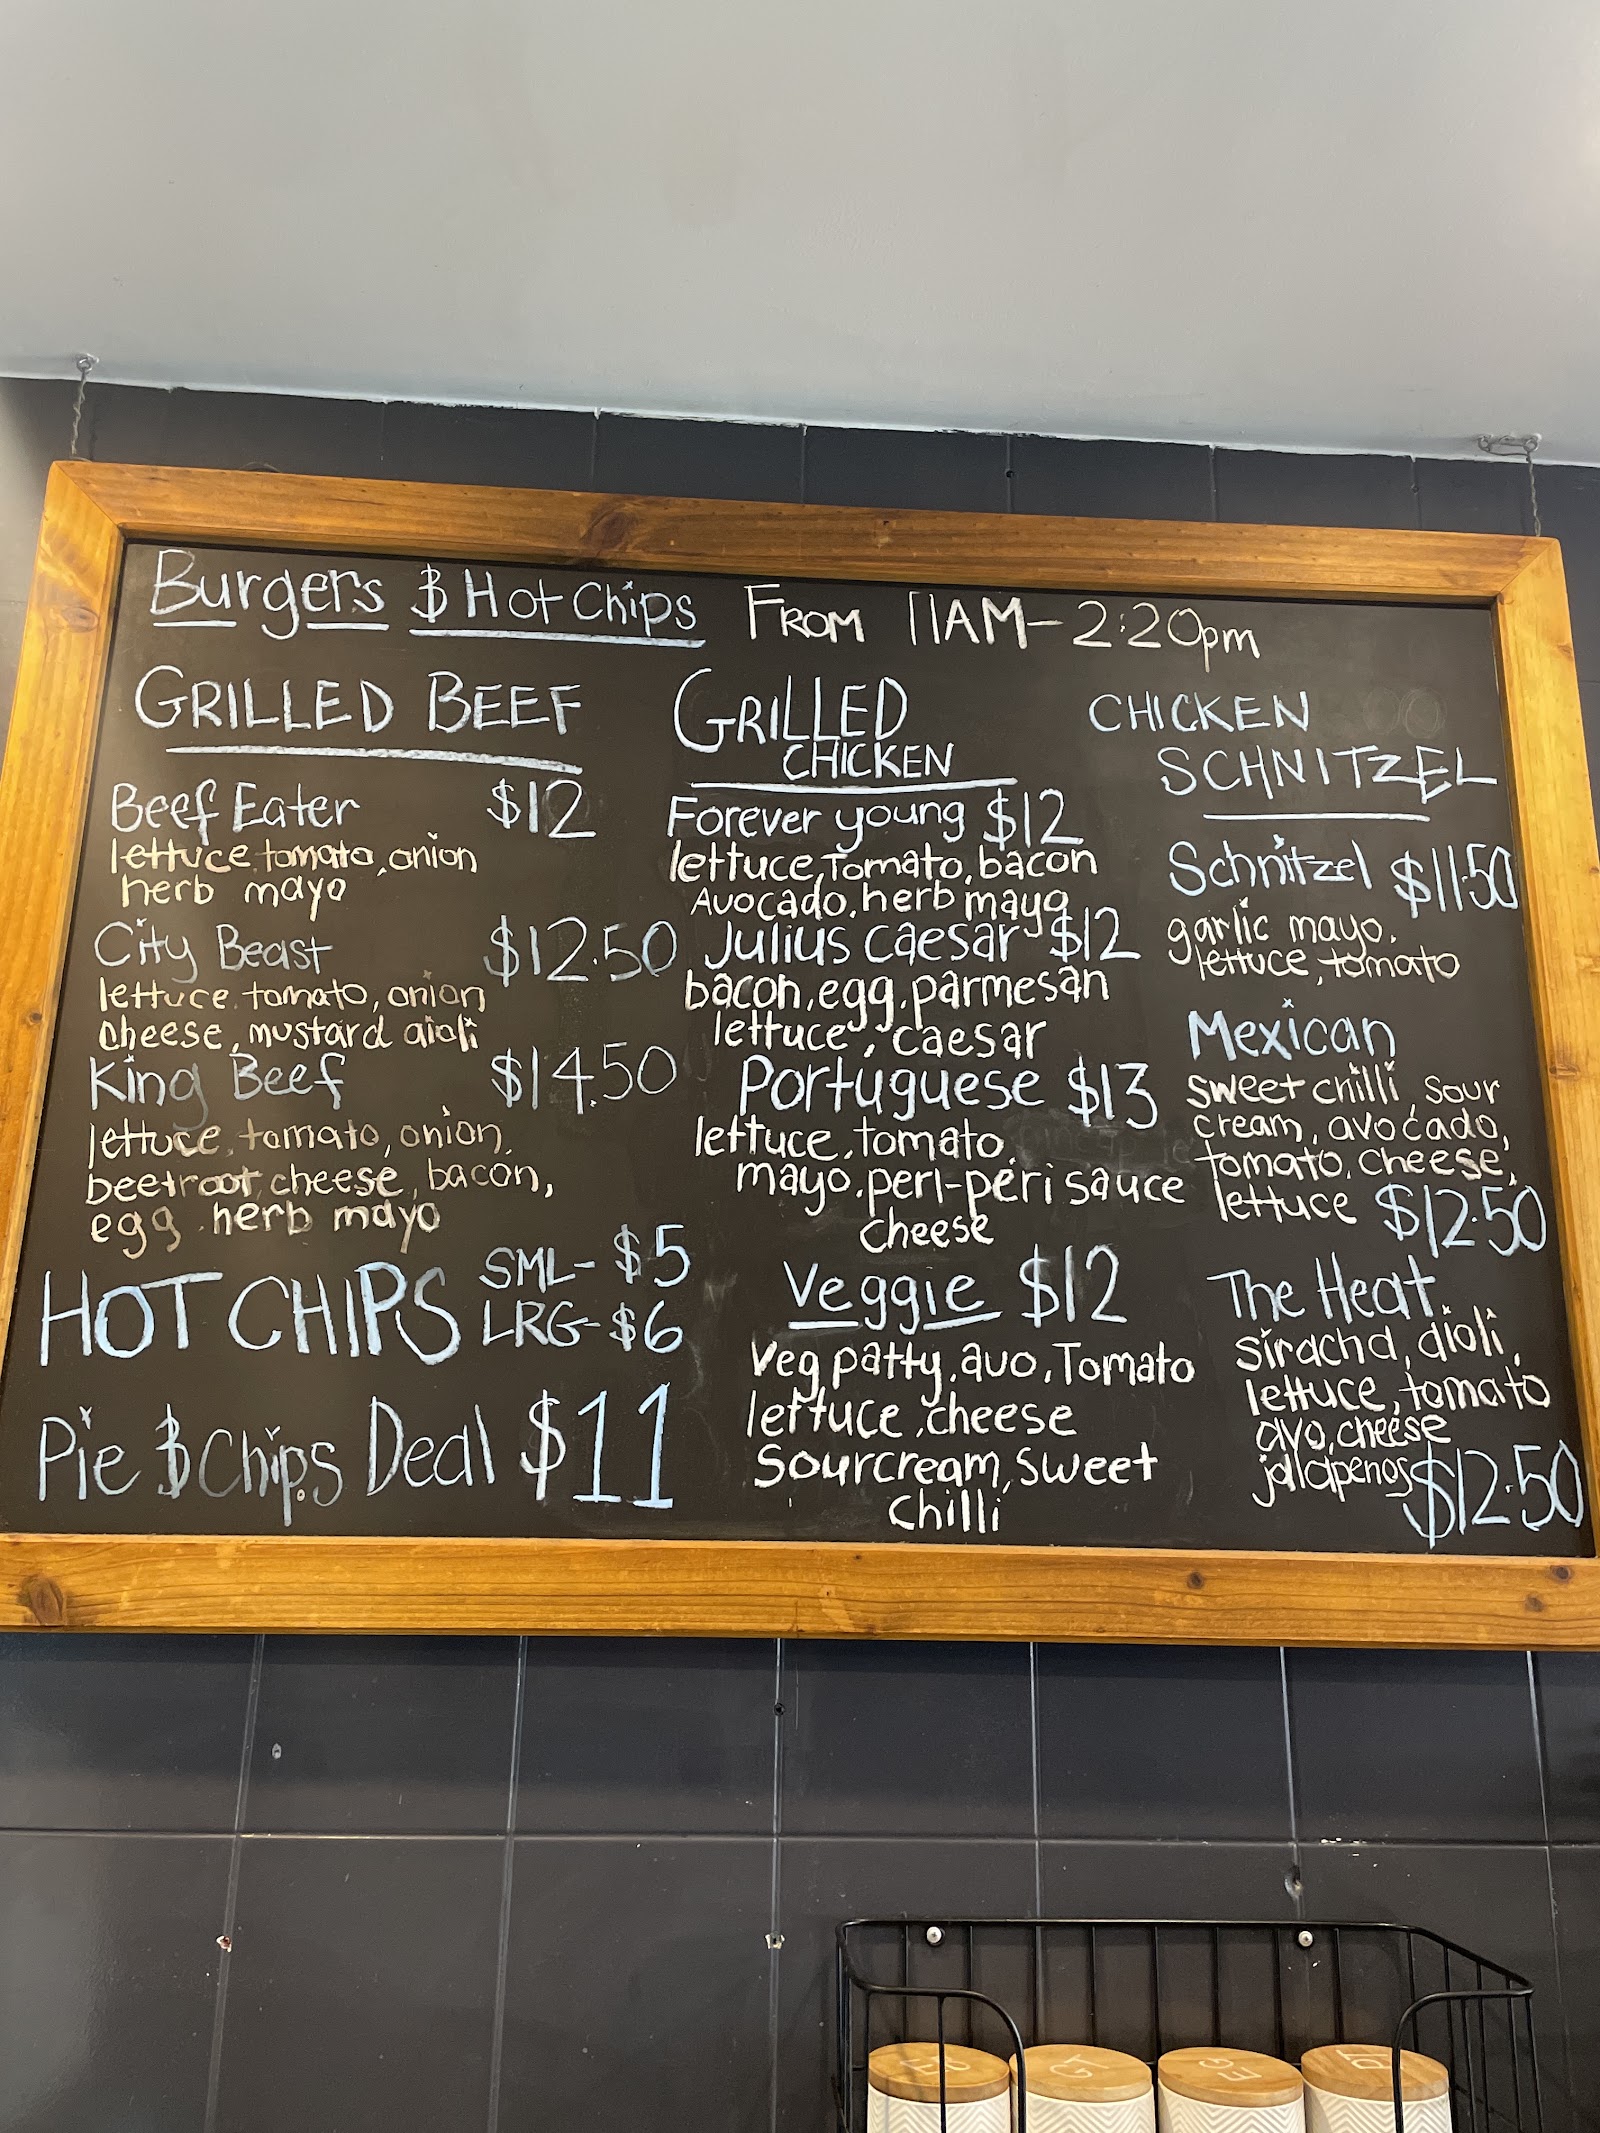 Burgers & Hot Chips From 11AM-2:20pm
GRILLED BEEF
Beef Eater $12
lettuce, tomato, onion
herb mayo
City Beast $12.50
lettuce, tomato, onion
cheese, mustard aioli
King Beef $14.50
lettuce, tomato, onion,
beetroot, cheese, bacon,
egg, herb mayo
HOT CHIPS SML- $5
LRG- $6
Pie & Chips Deal $11
GRILLED
CHICKEN
Forever young $12
lettuce, Tomato, bacon
Avocado, herb mayo
Julius caesar $12
bacon, egg, parmesan
lettuce, caesar
Portuguese $13
lettuce, tomato,
mayo, peri-peri sauce
cheese
Veggie $12
Veg patty, avo, Tomato
lettuce, cheese
Sourcream, sweet
chilli
CHICKEN
SCHNITZEL
Schnitzel $11.50
garlic mayo,
lettuce, tomato
Mexican
sweet chilli, sour
cream, avocado,
tomato, cheese,
lettuce $12.50
The Heat
siracha, aioli,
lettuce, tomato
avo, cheese
jalapenos $12.50
GT
EG